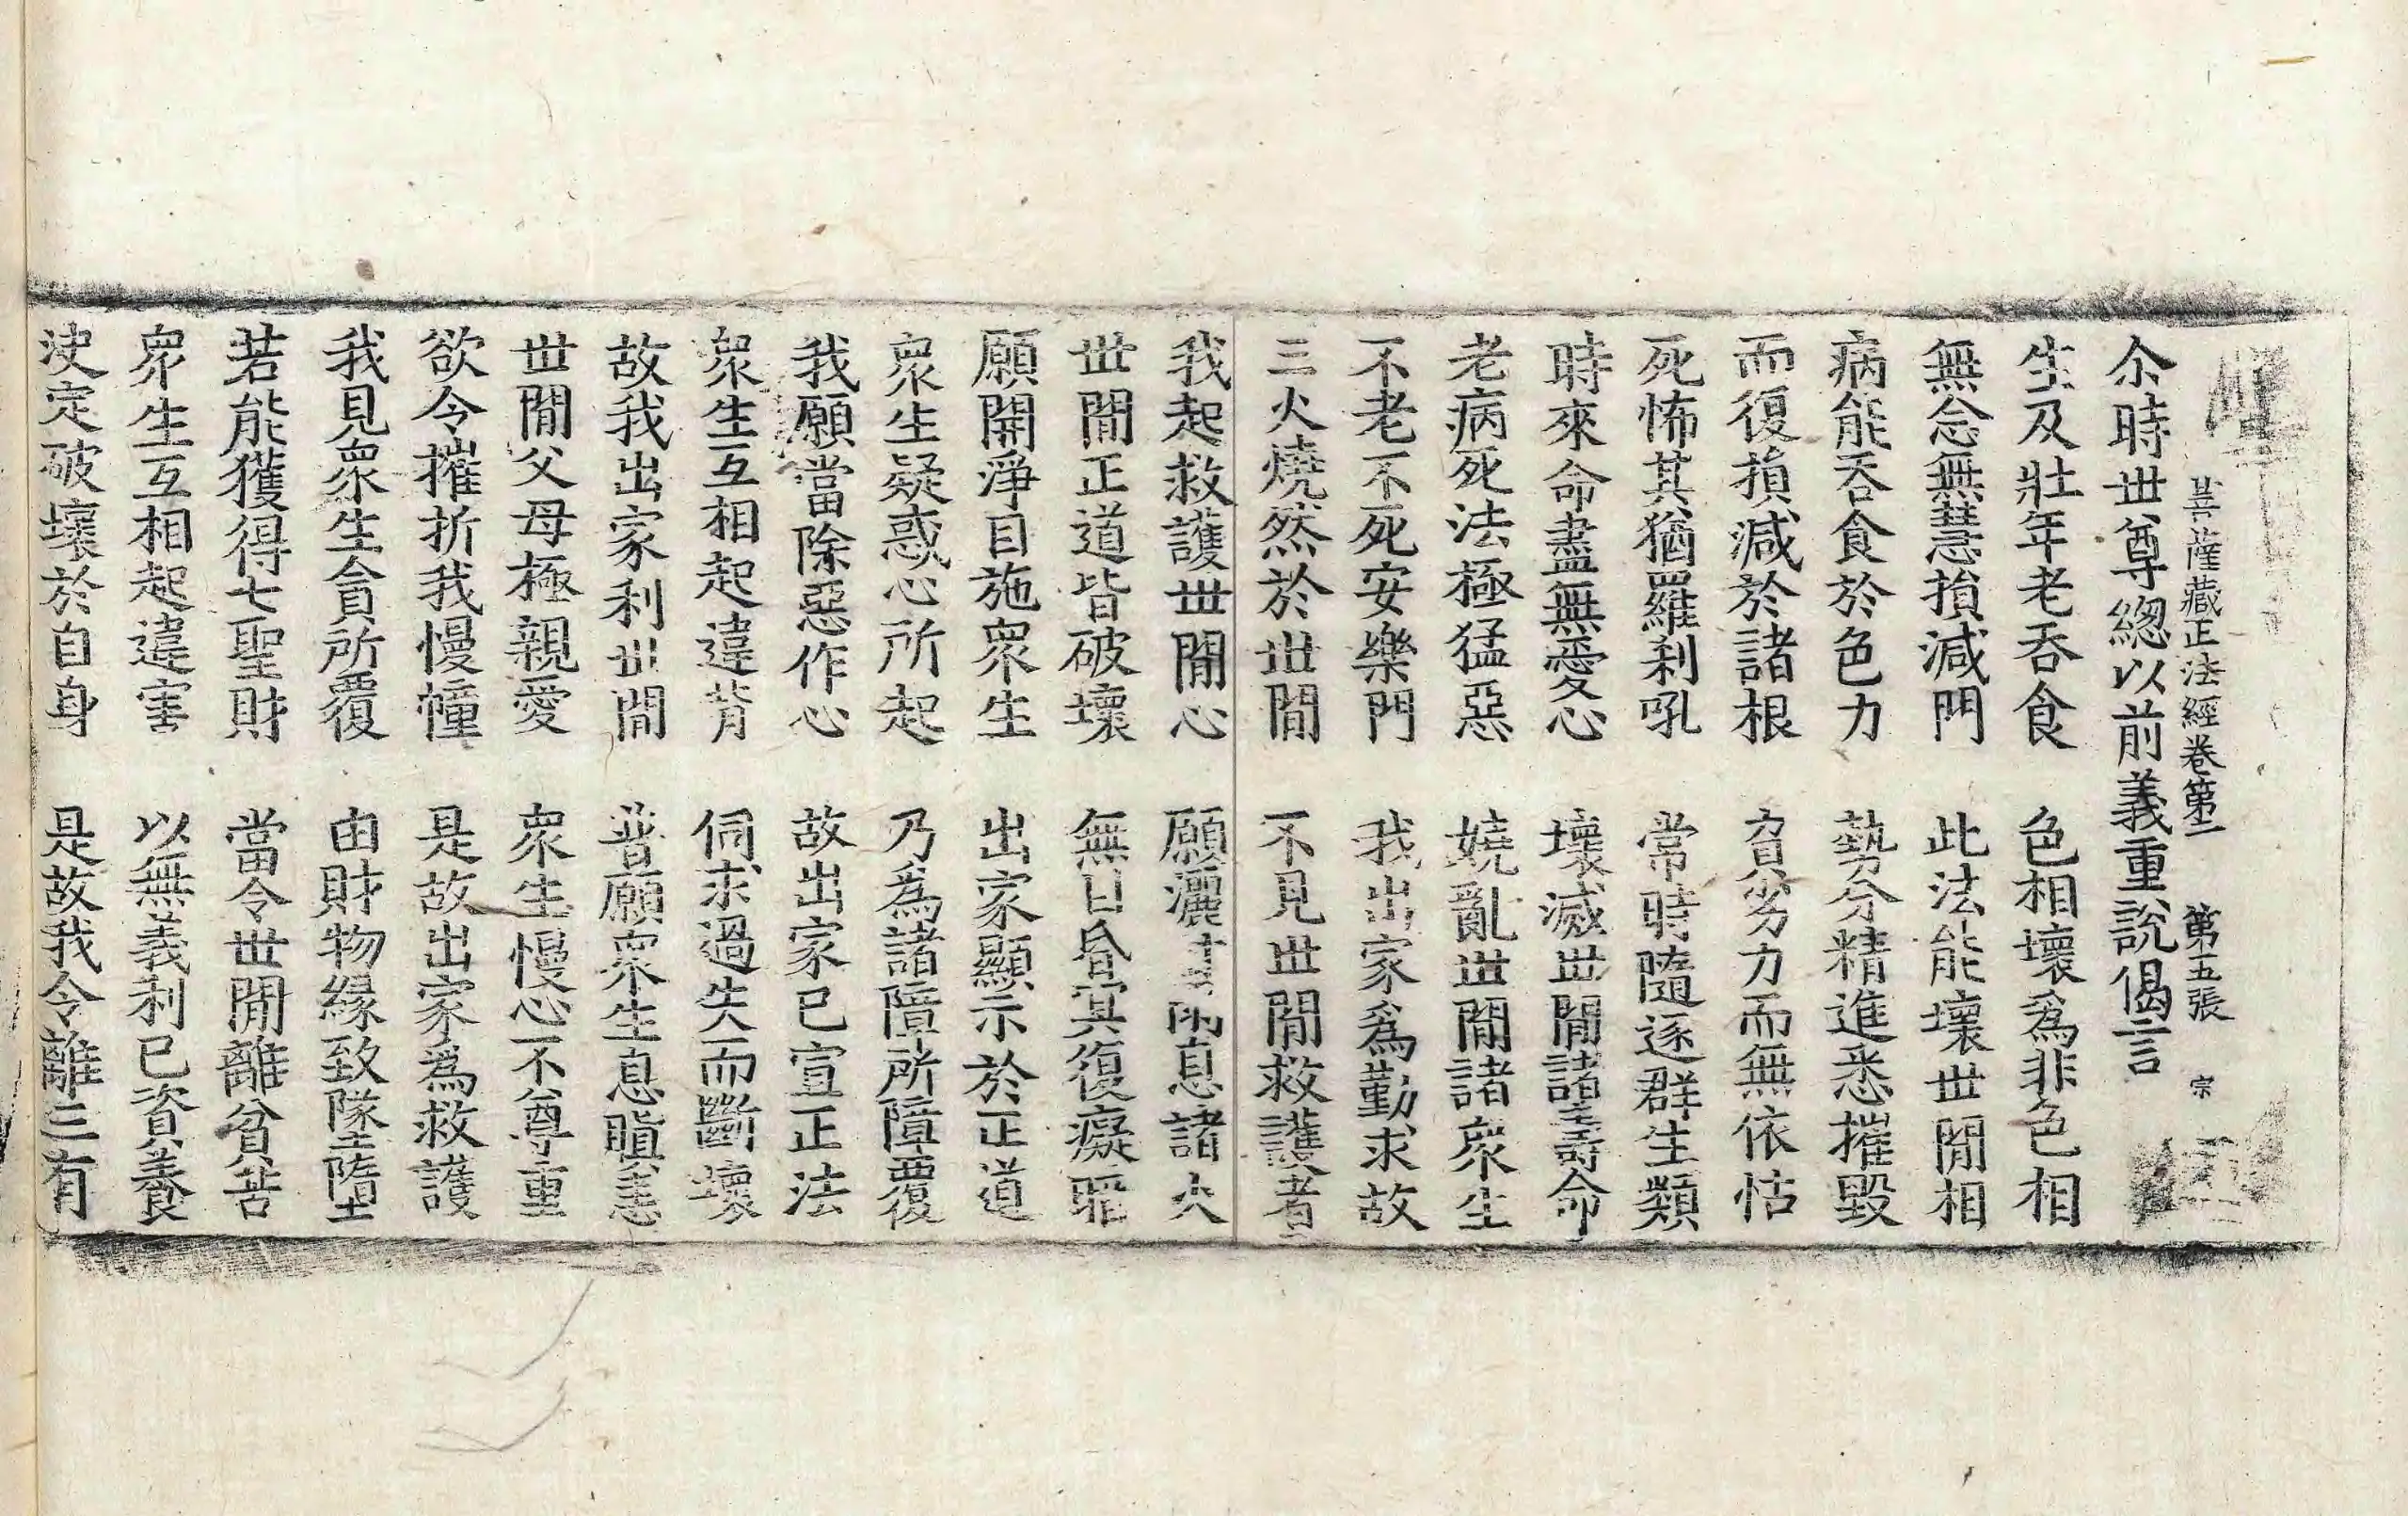 菩薩藏正法經卷第二 第五張 宗
尒時世尊緫以前義重說偈言
生及壯年老吞食 色相壞為非色相
無念無慧損減門 此法能壞世間相
病能吞食於色力 勢分精進悉摧毀
而復損減於諸根 貧劣力而無依怙
死怖其猶羅刹吼 常時隨逐群生類
時來命盡無愛心 壞滅世間諸壽命
老病死法極猛惡 嬈亂世間諸衆生
不老不死安樂門 我出家為勤求故
三火燒然於世間 不見世間救護者
我起救護世間心 願灑 雨息諸火
世間正道皆破壞 無目昏冥復癡聾
願開淨目施衆生 出家顯示於正道
衆生疑惑心所起 乃為諸障所障覆
我願當除惡作心 故出家已宣正法
衆生互相起違背 伺求過失而斷壞
故我出家利世間 普願衆生息瞋恚
世間父母極親愛 衆生慢心不尊重
欲令摧折我慢幢 是故出家為救護
我見衆生貪所覆 由財物緣致墜墮
若能獲得七聖財 當令世間離貧苦
衆生互相起違害 以無義利已資養
決定破壞於自身 是故我令離三有